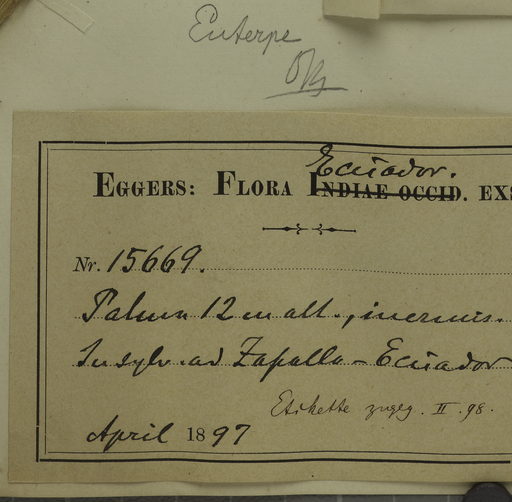 Euterpe
Ecuador.
EGGERS: FLORA INDIAE OCCID. EXS
Nr. 15669.
Palma 12 m alt., inermis.
In sylv. ad Zapallo - Ecuador
Etikette zugeg. II. 98.
April 1897